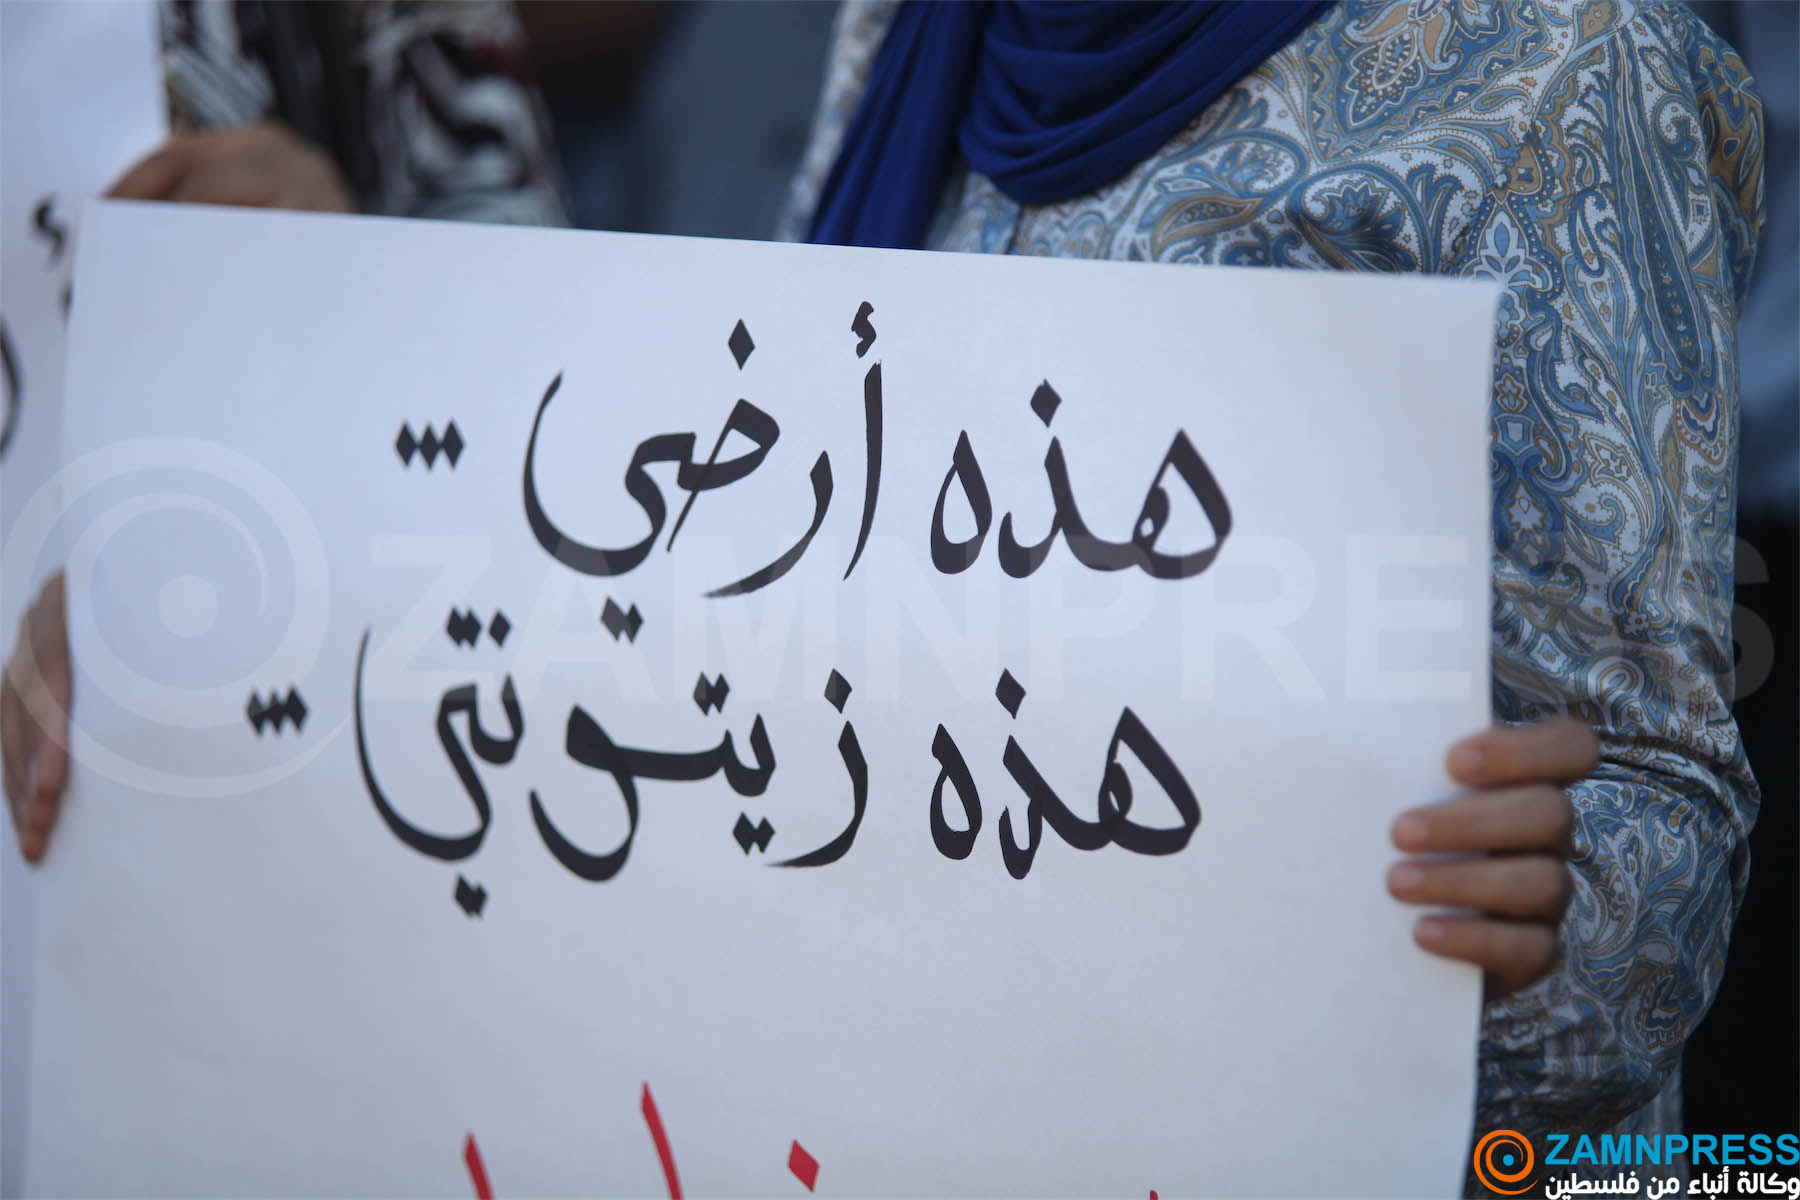 هذه أرضي...
هذه زيتونتي...
ZAMNPRESS
ZAMNPRESS
وكالة أنباء من فلسطين